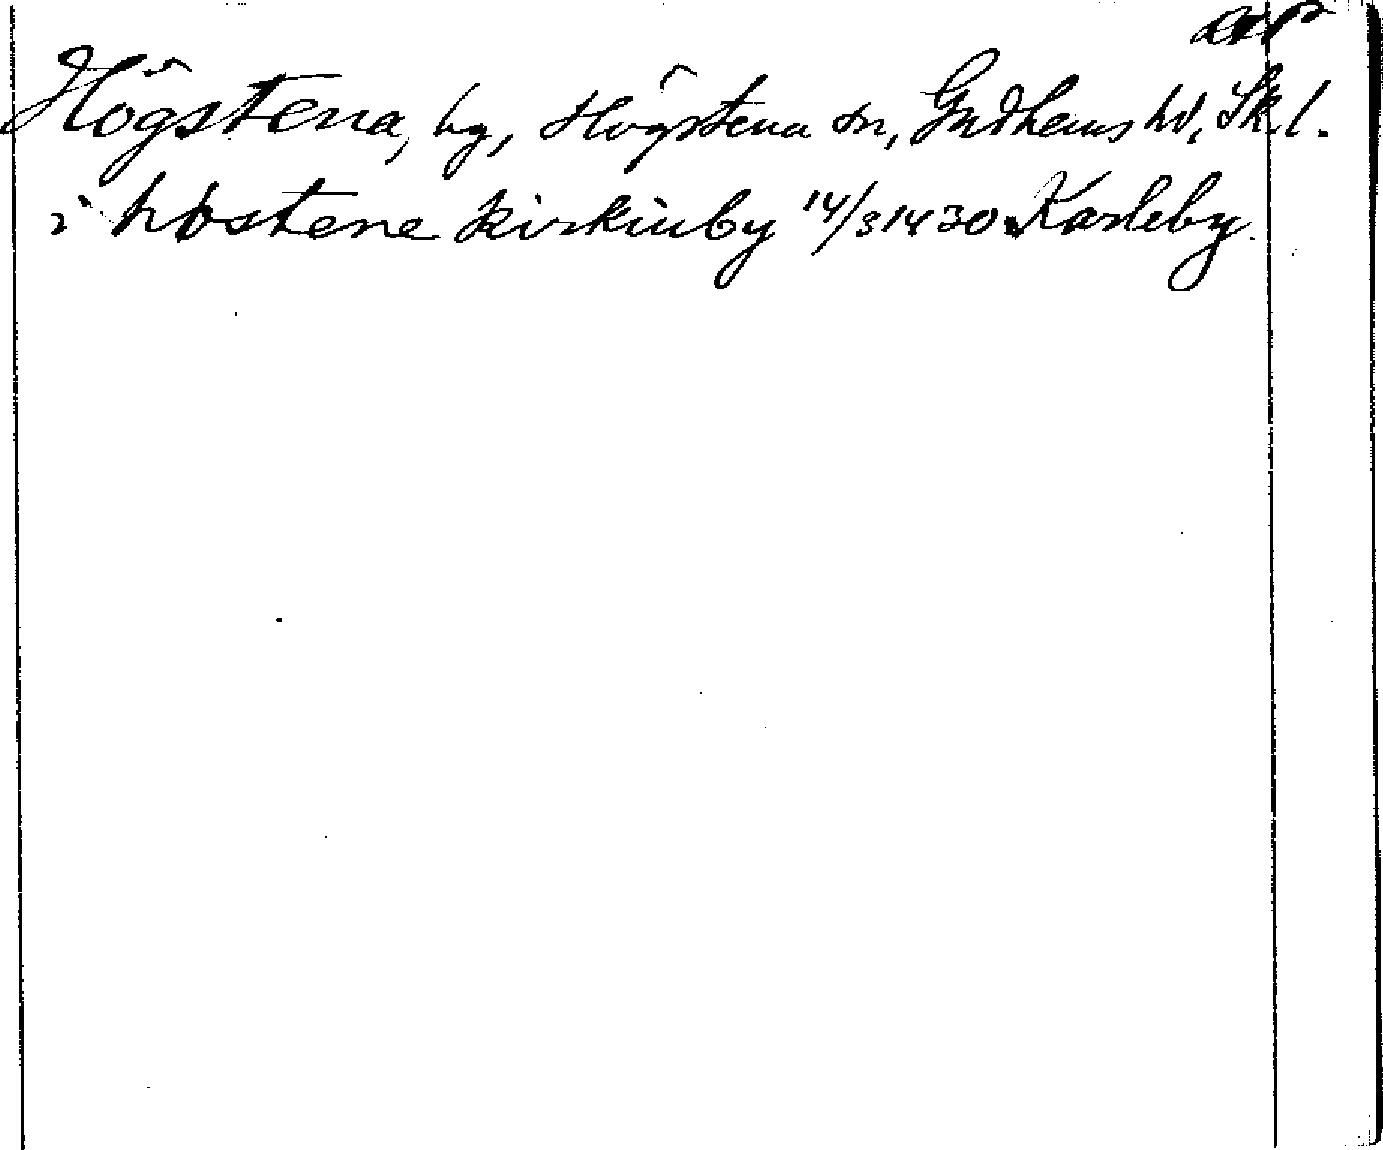 Högstena, by, Högstena sn, Gudhems hd, Sk.l.
i høstene kirkiuby 14/3 1430 Karleby.